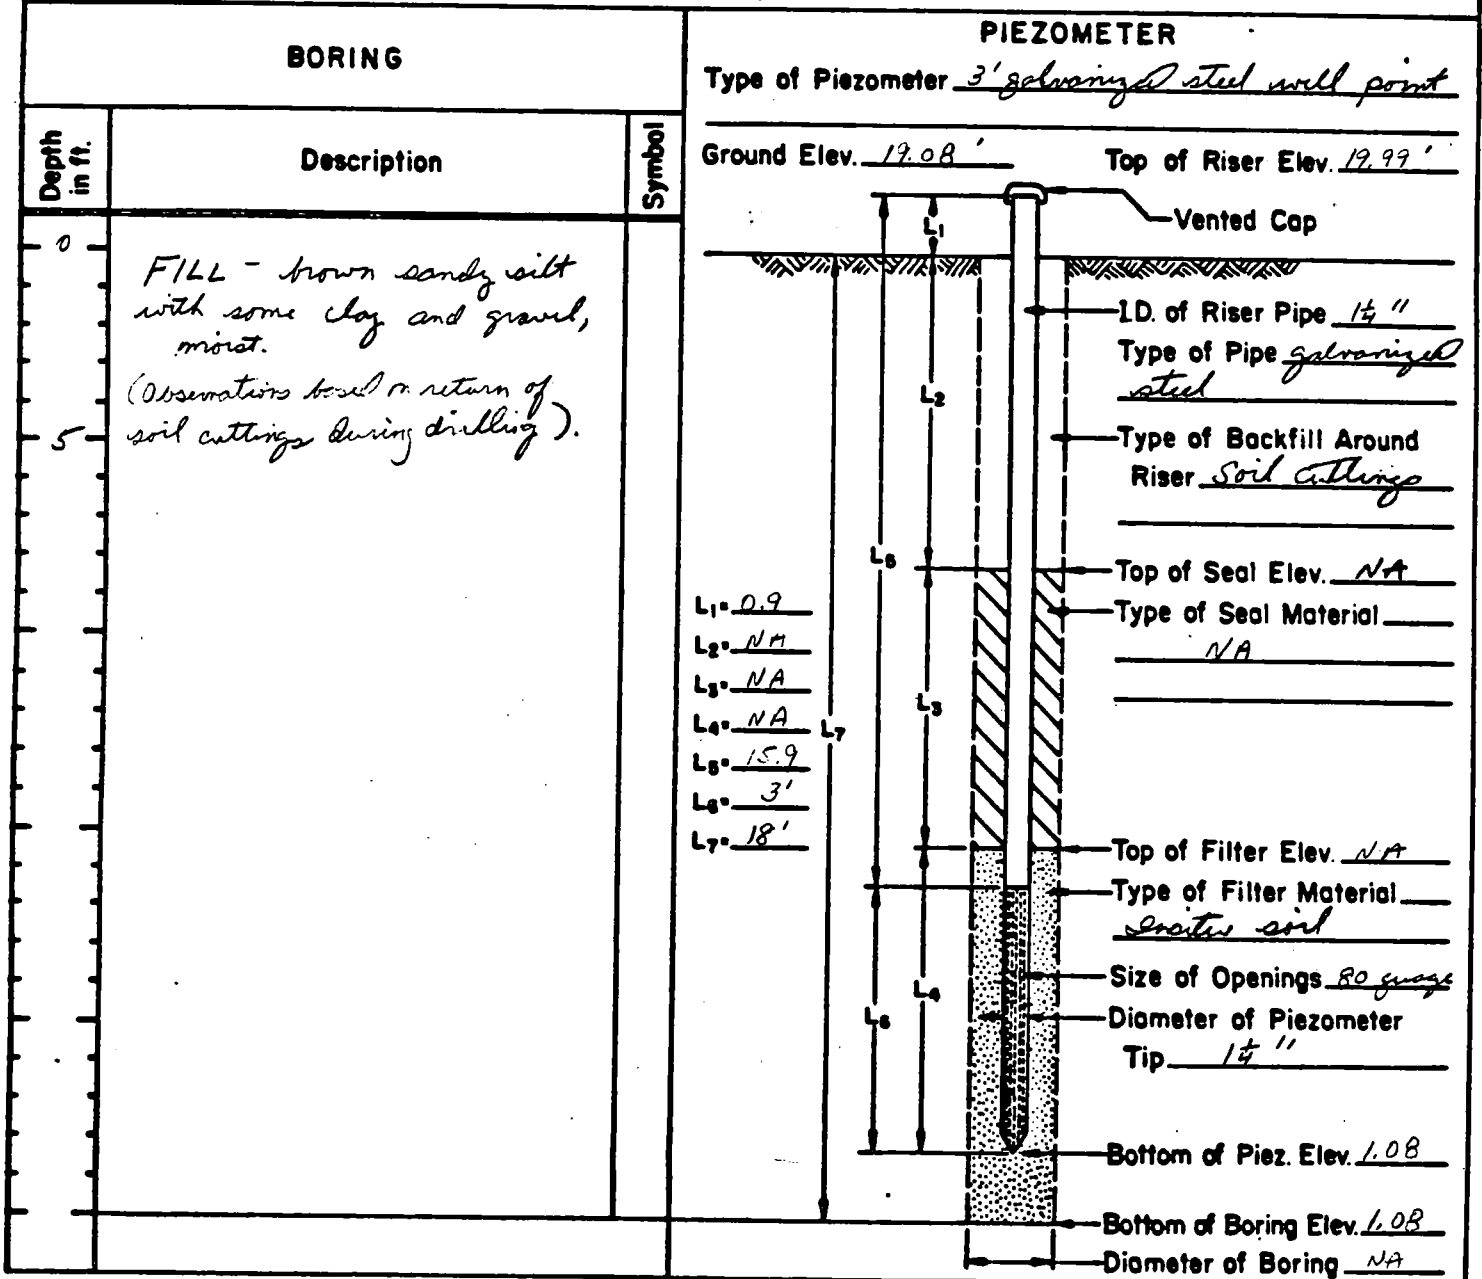 BORING
Depth in ft.
Description
Symbol
0
5
FILL - brown sandy silt
with some clay and gravel,
moist.
(Observations based on return of
soil cuttings during drilling).
PIEZOMETER
Type of Piezometer 3' galvanized steel well point
Ground Elev. 19.08' Top of Riser Elev. 19.99'
Vented Cap
I.D. of Riser Pipe 1¼"
Type of Pipe galvanized
steel
Type of Backfill Around
Riser Soil Cuttings
Top of Seal Elev. NA
Type of Seal Material
NA
Top of Filter Elev. NA
Type of Filter Material
Insitu soil
Size of Openings 80 guage
Diameter of Piezometer
Tip 1¼"
Bottom of Piez. Elev. 1.08
Bottom of Boring Elev. 1.08
Diameter of Boring NA
L₁= 0.9
L₂= NA
L₃= NA
L₄= NA
L₅= 15.9
L₆= 3'
L₇= 18'
L₁
L₂
L₅
L₃
L₇
L₄
L₆